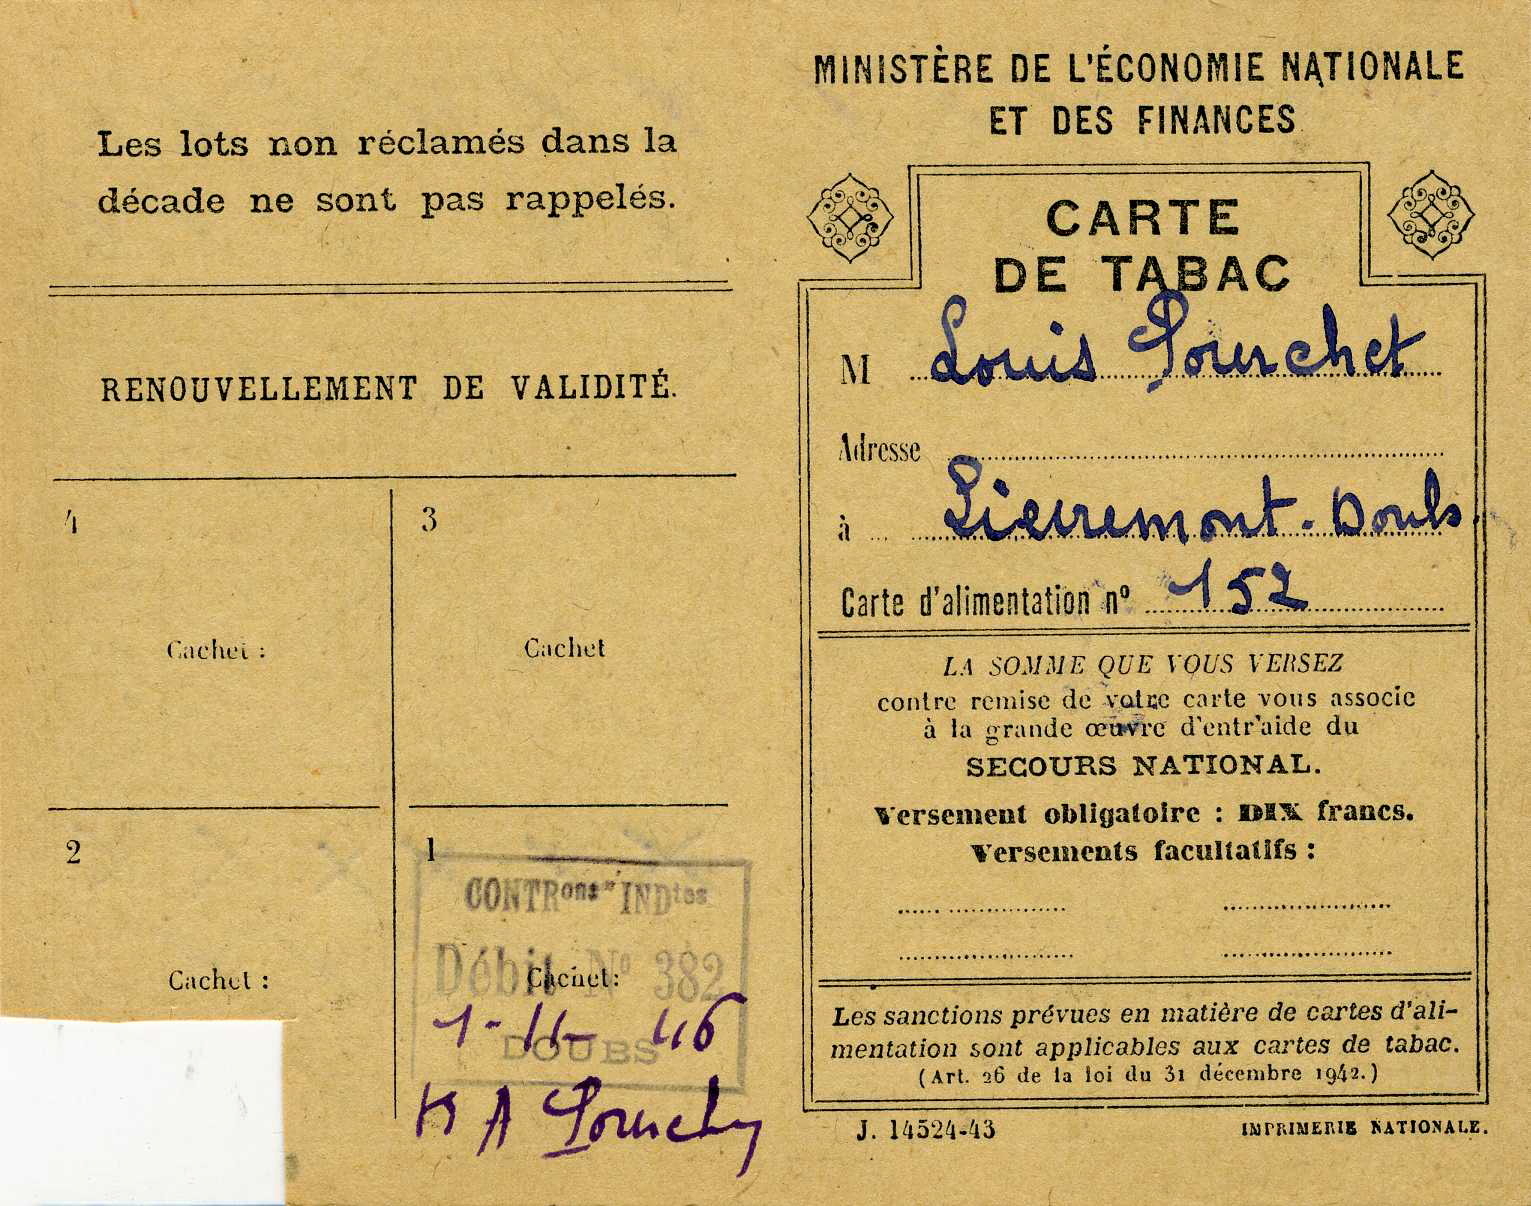 Les lots non réclamés dans la
décade ne sont pas rappelés.
RENOUVELLEMENT DE VALIDITÉ.
4
Cachet :
3
Cachet
2
Cachet :
1
CONTRons INDtes
Débit No 382
Cachet :
DOUBS
1-11-46
MINISTÈRE DE L'ÉCONOMIE NATIONALE
ET DES FINANCES
CARTE
DE TABAC
M Louis Pourchet
Adresse
à Pierremont-Doubs
Carte d'alimentation nº 152
LA SOMME QUE VOUS VERSEZ
contre remise de votre carte vous associe
à la grande œuvre d'entr'aide du
SECOURS NATIONAL.
Versement obligatoire : DIX francs.
Versements facultatifs :
Les sanctions prévues en matière de cartes d'ali-
mentation sont applicables aux cartes de tabac.
(Art. 26 de la loi du 31 décembre 1942.)
J. 14524-43
IMPRIMERIE NATIONALE.